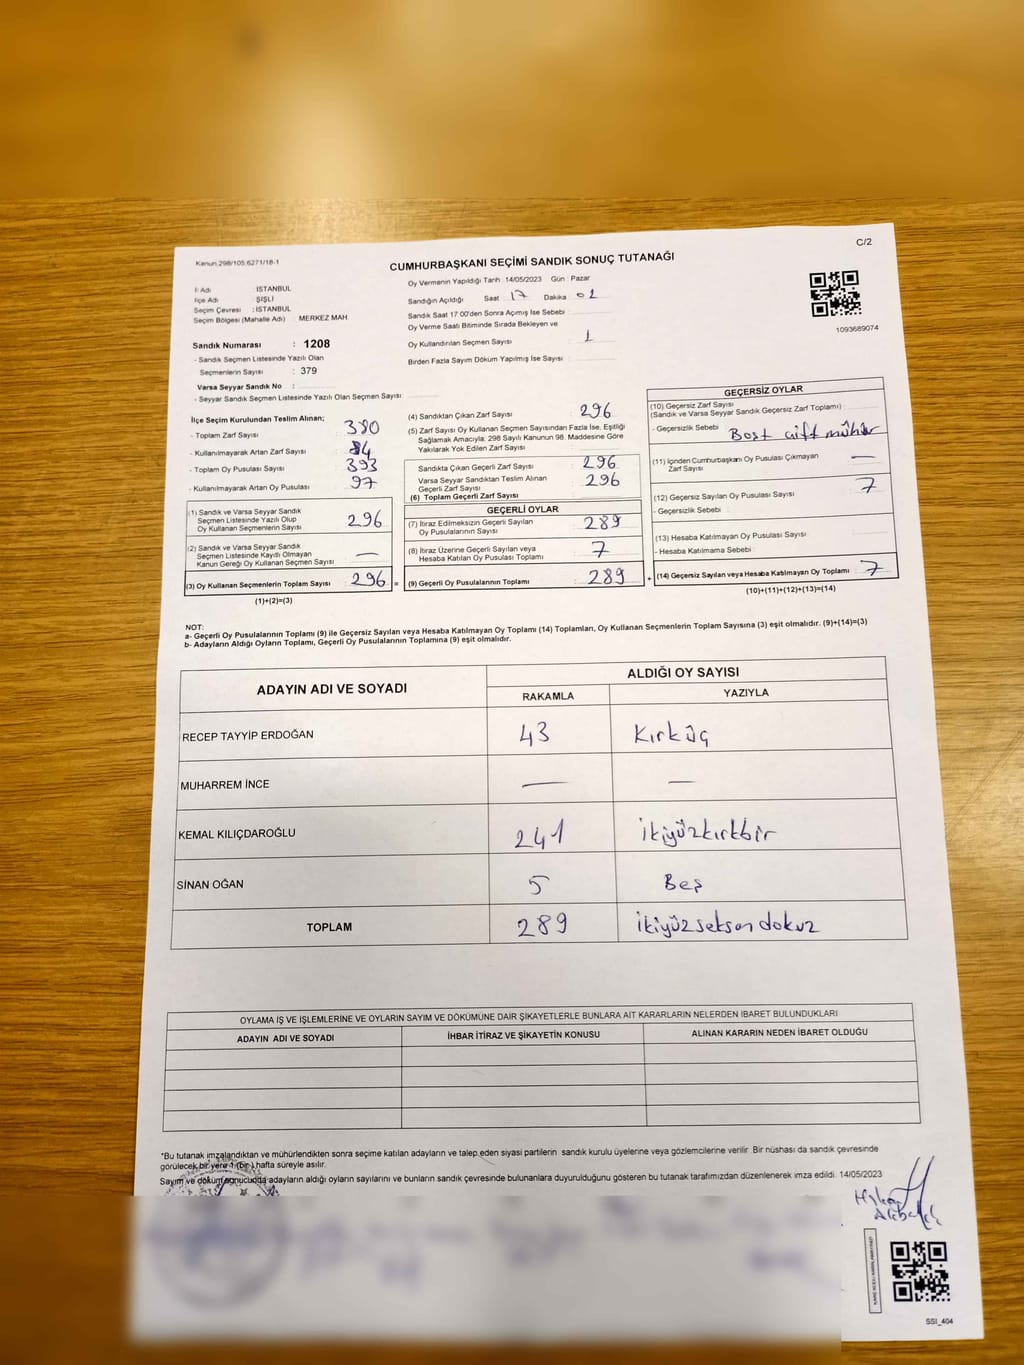 C/2
Kanun.298/105.6271/18-1
CUMHURBAŞKANI SEÇİMİ SANDIK SONUÇ TUTANAĞI
İl Adı : İSTANBUL
İlçe Adı : ŞİŞLİ
Seçim Çevresi : İSTANBUL
Seçim Bölgesi (Mahalle Adı) : MERKEZ MAH.
Sandık Numarası : 1208
- Sandık Seçmen Listesinde Yazılı Olan
Seçmenlerin Sayısı : 379
Varsa Seyyar Sandık No :
- Seyyar Sandık Seçmen Listesinde Yazılı Olan Seçmen Sayısı:
Oy Vermenin Yapıldığı Tarih : 14/05/2023 Gün : Pazar
Sandığın Açıldığı Saat 17 Dakika 01
Sandık Saat 17:00'den Sonra Açımış İse Sebebi :
Oy Verme Saati Bitiminde Sırada Bekleyen ve
Oy Kullandırılan Seçmen Sayısı : 1
Birden Fazla Sayım Döküm Yapılmış İse Sayısı :
1093689074
İlçe Seçim Kurulundan Teslim Alınan;
- Toplam Zarf Sayısı : 380
- Kullanılmayarak Artan Zarf Sayısı : 84
- Toplam Oy Pusulası Sayısı : 393
- Kullanılmayarak Artan Oy Pusulası : 97
(1) Sandık ve Varsa Seyyar Sandık
Seçmen Listesinde Yazılı Olup
Oy Kullanan Seçmenlerin Sayısı : 296
(2) Sandık ve Varsa Seyyar Sandık
Seçmen Listesinde Kaydı Olmayan
Kanun Gereği Oy Kullanan Seçmen Sayısı : —
(3) Oy Kullanan Seçmenlerin Toplam Sayısı : 296 =
(1)+(2)=(3)
(4) Sandıktan Çıkan Zarf Sayısı : 296
(5) Zarf Sayısı Oy Kullanan Seçmen Sayısından Fazla İse, Eşitliği
Sağlamak Amacıyla, 298 Sayılı Kanunun 98. Maddesine Göre
Yakılarak Yok Edilen Zarf Sayısı :
Sandıkta Çıkan Geçerli Zarf Sayısı : 296
Varsa Seyyar Sandıktan Teslim Alınan
Geçerli Zarf Sayısı : 296
(6) Toplam Geçerli Zarf Sayısı :
GEÇERLİ OYLAR
(7) İtiraz Edilmeksizin Geçerli Sayılan
Oy Pusulalarının Sayısı : 289
(8) İtiraz Üzerine Geçerli Sayılan veya
Hesaba Katılan Oy Pusulası Toplamı : 7
(9) Geçerli Oy Pusulalarının Toplamı : 289 +
GEÇERSİZ OYLAR
(10) Geçersiz Zarf Sayısı
(Sandık ve Varsa Seyyar Sandık Geçersiz Zarf Toplamı) :
- Geçersizlik Sebebi : Boş, çift mühür
(11) İçinden Cumhurbaşkanı Oy Pusulası Çıkmayan
Zarf Sayısı : —
(12) Geçersiz Sayılan Oy Pusulası Sayısı : 7
- Geçersizlik Sebebi :
(13) Hesaba Katılmayan Oy Pusulası Sayısı :
- Hesaba Katılmama Sebebi :
(14) Geçersiz Sayılan veya Hesaba Katılmayan Oy Toplamı : 7
(10)+(11)+(12)+(13)=(14)
NOT:
a- Geçerli Oy Pusulalarının Toplamı (9) ile Geçersiz Sayılan veya Hesaba Katılmayan Oy Toplamı (14) Toplamları, Oy Kullanan Seçmenlerin Toplam Sayısına (3) eşit olmalıdır. (9)+(14)=(3)
b- Adayların Aldığı Oyların Toplamı, Geçerli Oy Pusulalarının Toplamına (9) eşit olmalıdır.
ADAYIN ADI VE SOYADI ALDIĞI OY SAYISI
RAKAMLA YAZIYLA
RECEP TAYYİP ERDOĞAN 43 Kırküç
MUHARREM İNCE — —
KEMAL KILIÇDAROĞLU 241 İkiyüzkırkbir
SİNAN OĞAN 5 Beş
TOPLAM 289 İkiyüzseksendokuz
OYLAMA İŞ VE İŞLEMLERİNE VE OYLARIN SAYIM VE DÖKÜMÜNE DAİR ŞİKAYETLERLE BUNLARA AİT KARARLARIN NELERDEN İBARET BULUNDUKLARI
ADAYIN ADI VE SOYADI İHBAR İTİRAZ VE ŞİKAYETİN KONUSU ALINAN KARARIN NEDEN İBARET OLDUĞU
*Bu tutanak imzalandıktan ve mühürlendikten sonra seçime katılan adayların ve talep eden siyasi partilerin sandık kurulu üyelerine veya gözlemcilerine verilir. Bir nüshası da sandık çevresinde
görülecek bir yere 1 (bir) hafta süreyle asılır.
Sayım ve döküm sonucunda adayların aldığı oyların sayılarını ve bunların sandık çevresinde bulunanlara duyurulduğunu gösteren bu tutanak tarafımızdan düzenlenerek imza edildi. 14/05/2023
SSI_404